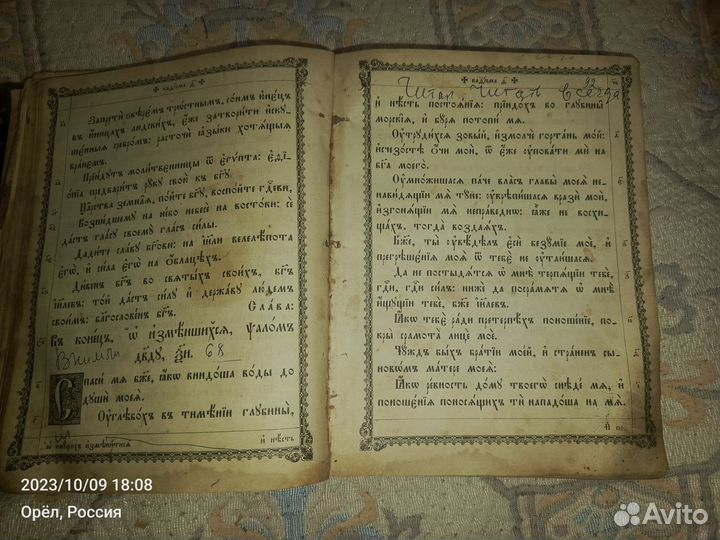 каѳїсма д҃
Запретѝ ѕвѣрє́мъ трⷭ҇тнымъ, со́нмъ ю҆́нєцъ
въ ю҆́ницахъ людски́хъ, є҆́жє затвори́ти и҆скꙋ-
шє́нныѧ срєбро́мъ: расточѝ ꙗ҆зы́ки хотѧ́щыѧ
бра́нємъ.
Прїи́дꙋтъ моли́твєнницы ѿ є҆гѵ́пта: є҆ѳїо́-
пїа прєдвари́тъ рꙋ́кꙋ свою̀ къ бг҃ꙋ.
Ца́рства зємна́ѧ, по́йтє бг҃ꙋ, воспо́йтє гдⷭ҇єви,
Возшє́дшємꙋ на нб҃о нєбєсѐ на восто́ки: сѐ
да́стъ гла́сꙋ своємꙋ̀ гла́съ си́лы.
Дади́тє сла́вꙋ бг҃ови: на і҆и҃ли вєлєлѣ́пота
є҆гѡ̀, и҆ си́ла є҆гѡ̀ на ѻ҆́блацѣхъ.
Ди́вєнъ бг҃ъ во свѧты́хъ свои́хъ, бг҃ъ
і҆и҃лєвъ: то́й да́стъ си́лꙋ и҆ дєржа́вꙋ лю́дємъ
свои̑мъ: блгⷭ҇овє́нъ бг҃ъ.
Сла́ва:
Въ конє́цъ, ѡ҆ и҆змѣ́ншихсѧ, ѱало́мъ
дв҃дꙋ, ѯ҃и. 68
Спаси́ мѧ бж҃є, ꙗ҆́кѡ внидо́ша во́ды до
дꙋшѝ моєѧ̀.
Оу҆глѣбо́хъ въ тимѣ́нїи глꙋбины̀,
и҆ нѣ́сть
каѳїсма д҃
Читал Читал всегда
и҆ нѣ́сть постоѧ́нїѧ: прїидо́хъ во глꙋбины̑
морскі̑ѧ, и҆ бꙋ́рѧ потопи́ мѧ.
Оу҆трꙋди́хсѧ зовы́й, и҆змолчѐ горта́нь мо́й:
и҆счєзо́стѣ ѻ҆́чи моѝ, ѿ є҆́жє оу҆пова́ти мѝ на
бг҃а моєго̀.
Оу҆мно́жишасѧ па́чє вла́съ главы̀ моєѧ̀ нє-
нави́дѧщїи мѧ̀ тꙋ́нє: оу҆крѣпи́шасѧ вразѝ моѝ,
и҆згонѧ́щїи мѧ̀ нєпра́вєднѡ: ꙗ҆̀жє нє восхи-
ща́хъ, тогда̀ воздаѧ́хъ.
Бж҃є, ты̀ оу҆вѣ́дѣлъ є҆сѝ бєзꙋ́мїє моѐ, и҆
прєгрѣшє́нїѧ моѧ̑ ѿ тєбє̀ нє оу҆таи́шасѧ.
Да нє постыдѧ́тсѧ ѡ҆ мнѣ̀ тєрпѧ́щїи тєбѐ,
гдⷭ҇и, гдⷭ҇и си́лъ: нижѐ да посра́мѧтсѧ ѡ҆ мнѣ̀
и҆́щꙋщїи тєбѐ, бж҃є і҆и҃лєвъ.
Ꙗ҆́кѡ тєбє̀ ра́ди прєтєрпѣ́хъ поношє́нїє, по-
кры̀ срамота̀ лицѐ моѐ.
Чꙋ́ждь бы́хъ бра́тїи моє́й, и҆ стра́нєнъ сы-
новѡ́мъ ма́тєрє моєѧ̀:
Ꙗ҆́кѡ рє́вность до́мꙋ твоєгѡ̀ снѣдє́ мѧ, и҆
поношє́нїѧ поносѧ́щихъ тѝ нападо́ша на мѧ̀.
2023/10/09 18:08
Орёл, Россия
Avito